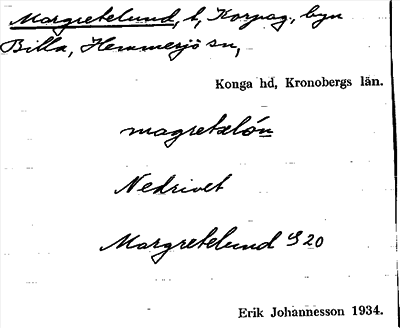 Margretelund, t, Korpag, byn
Billa, Hemmesjö sn,
Konga hd, Kronobergs län.
magretəlón
Nedrivet
Margretelund S 20
Erik Johannesson 1934.